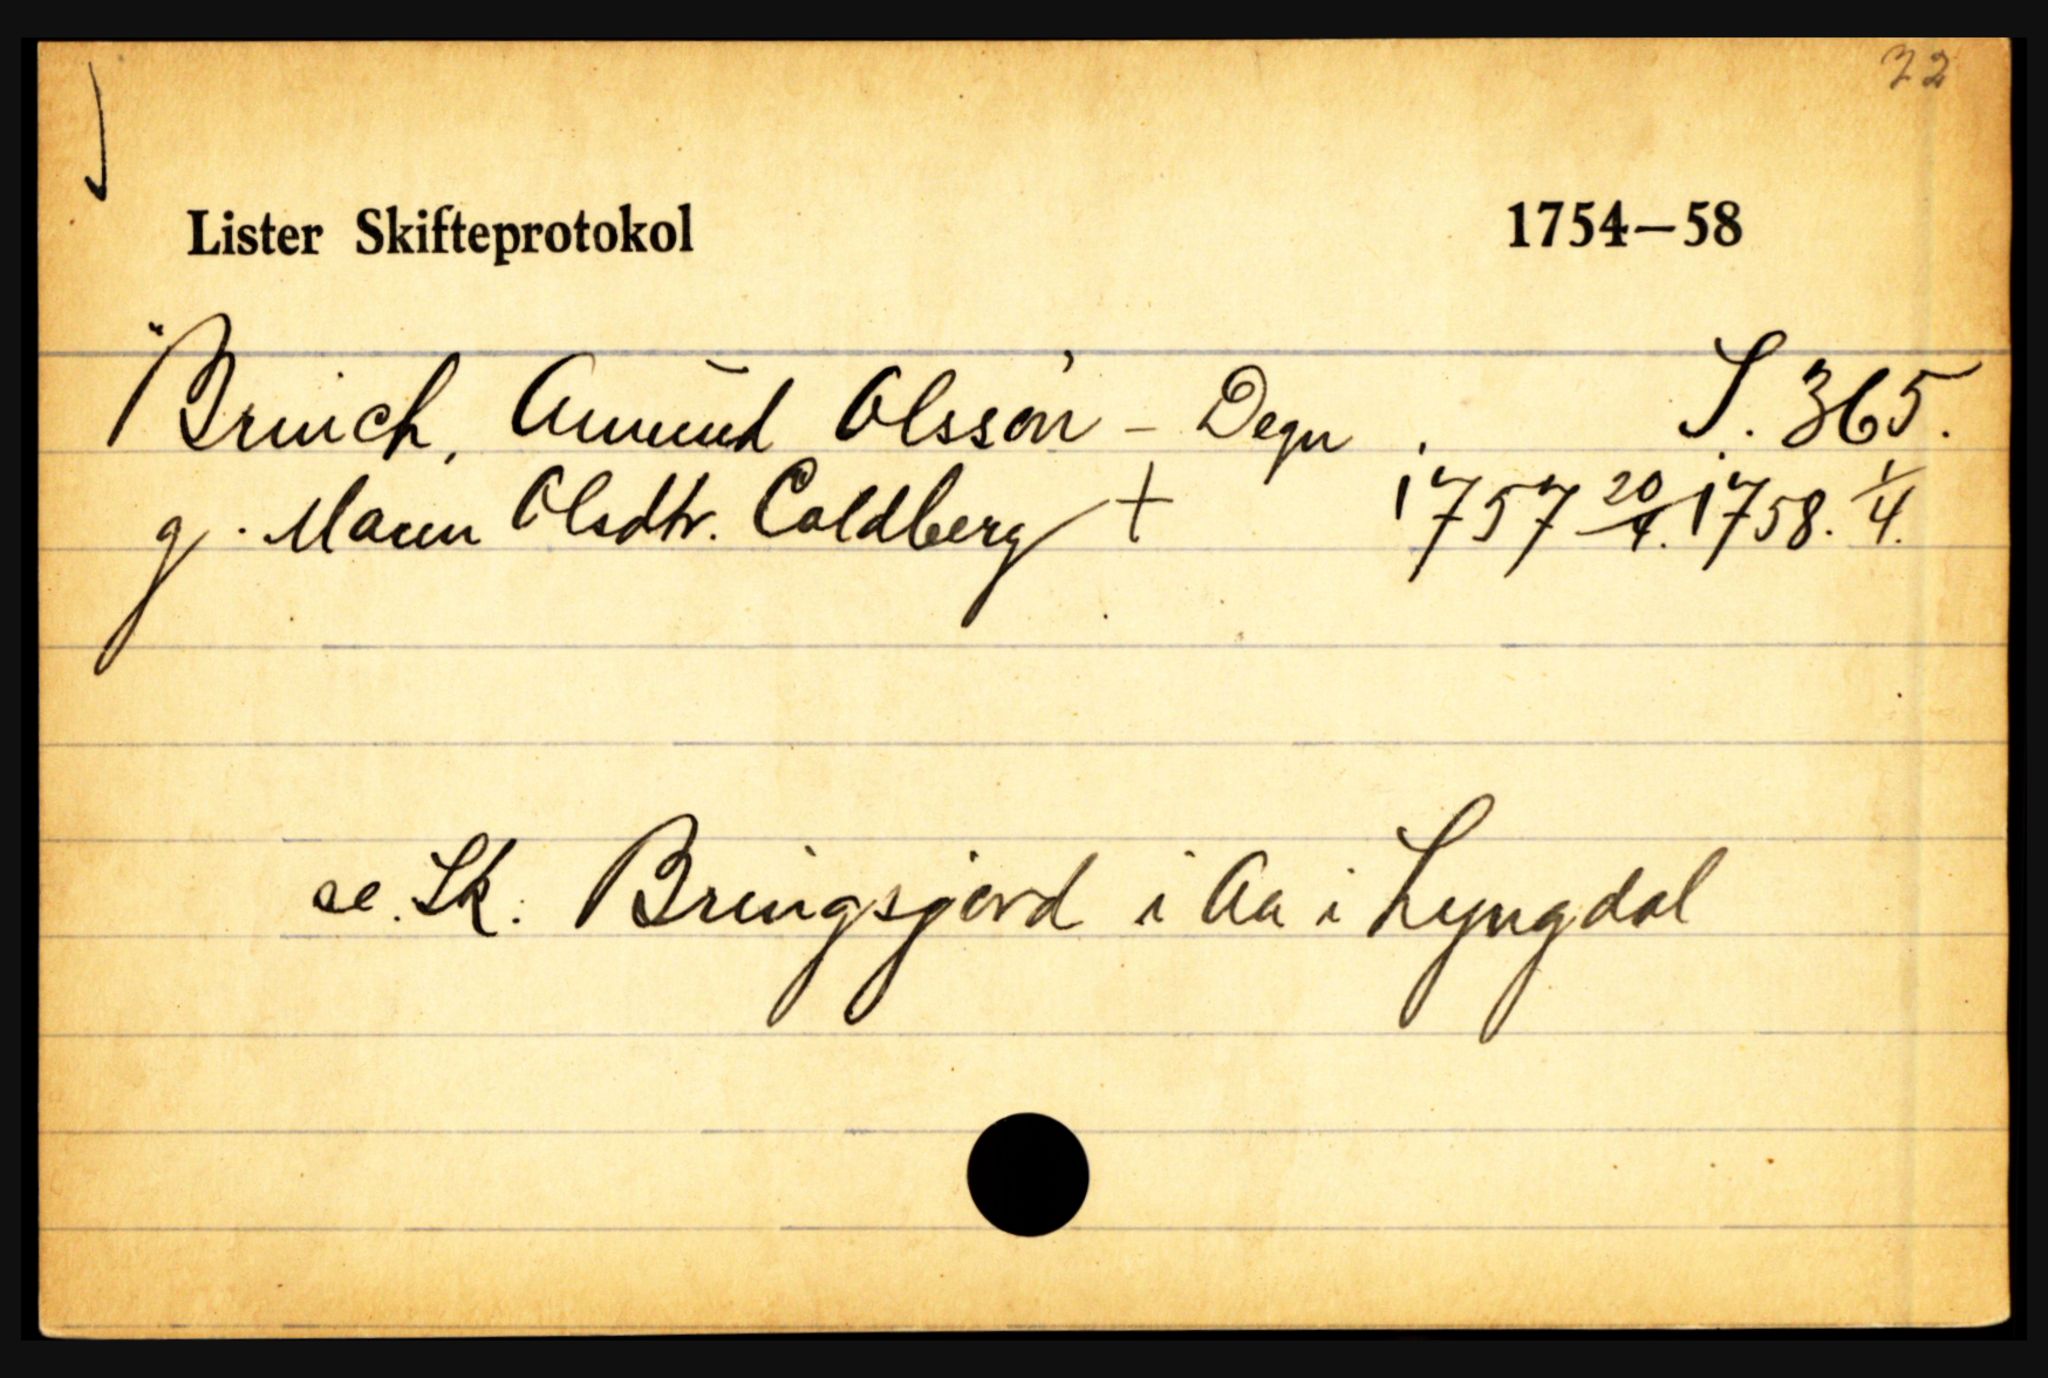 22
Lister Skifteprotokol 1754—58
"Brinch, Amund Olssön - Degn. S. 365.
g. Maren Olsdtr. Coldberg + 1757 20/4. 1758. 1/4.
se. Sk. Bringsjord i Aa i Lyngdal